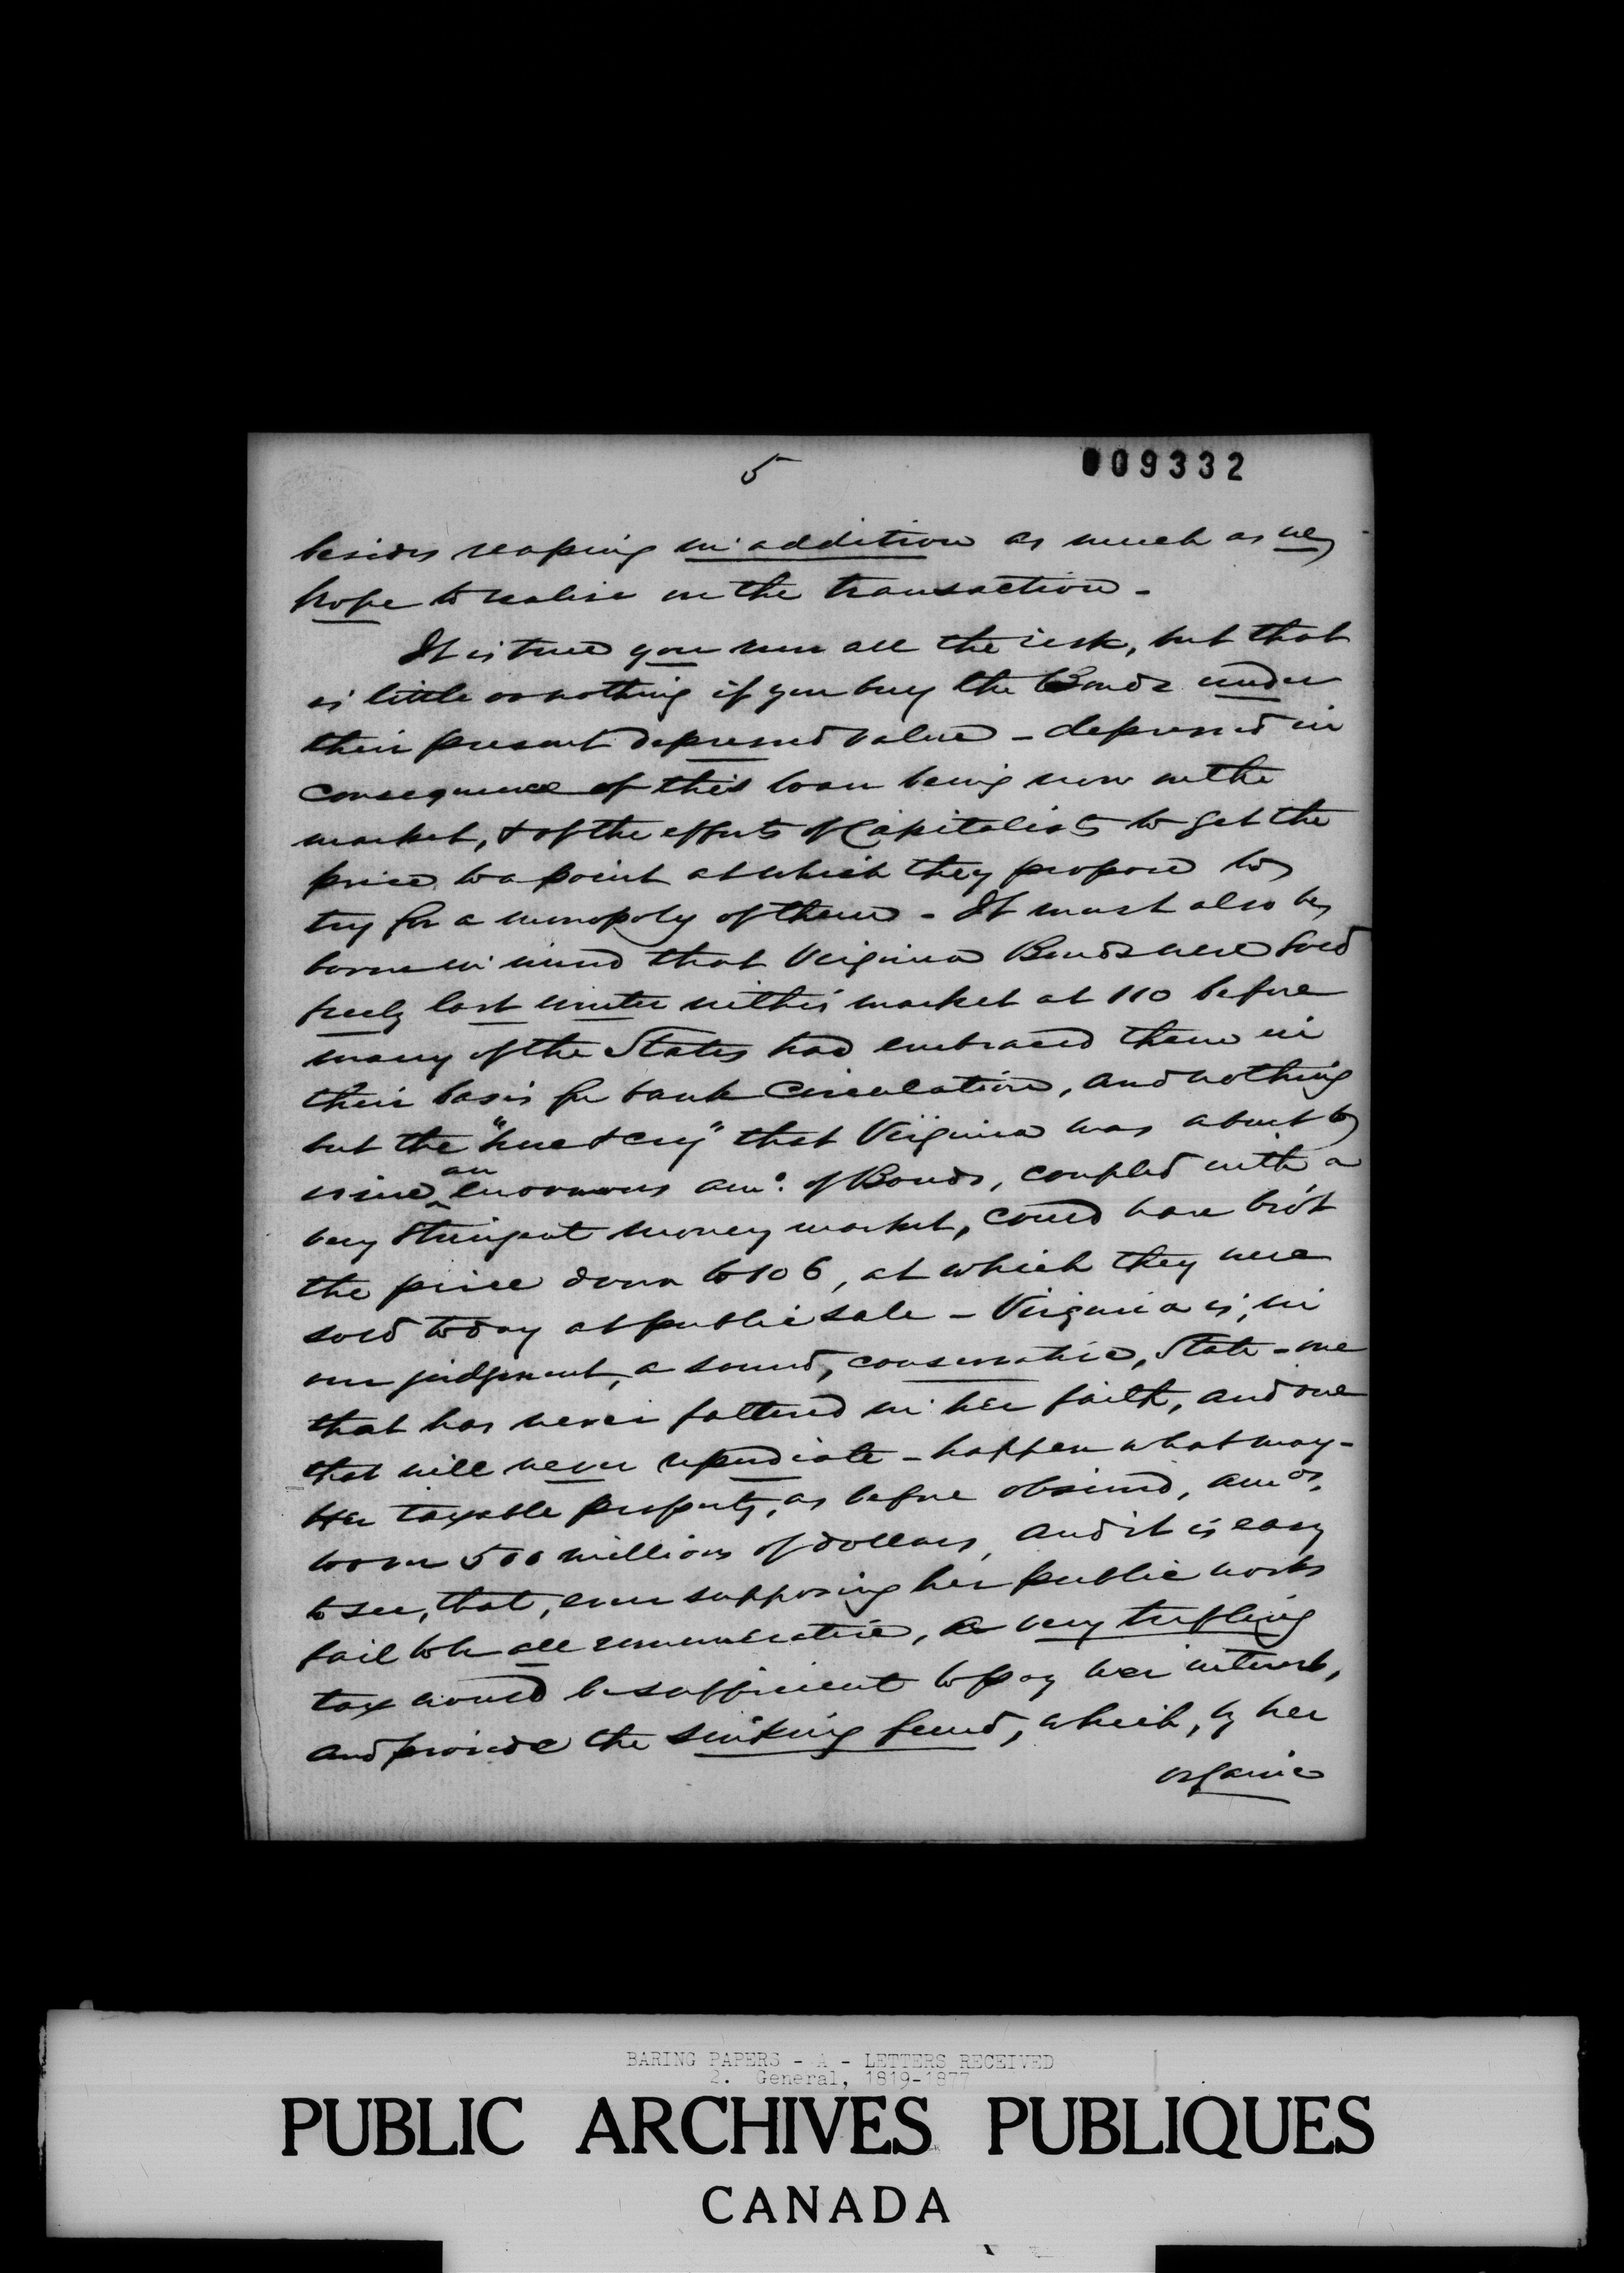 5
009332
besides reaping in addition as much as we
hope to realise on the transaction -
It is true you run all the risk, but that
is little or nothing if you buy the Bonds under
their present depressed value - depressed in
consequence of this loan being now on the
market, & of the efforts of Capitalists to get the
price to a point at which they propose to
try for a monopoly of them - It must also be
borne in mind that Virginia Bonds were sold
freely last winter in this market at 110 before
many of the States had embraced them in
their basis for bank circulation, and nothing
but the "hue & cry" that Virginia was about to
issue an enormous amo. of Bonds, coupled with a
very stringent money market, could have bro't
the price down to 106, at which they were
sold today at public sale - Virginia is, in
our judgment, a sound, conservative, State - one
that has never faltered in her faith, and one
that will never repudiate - happen what may -
Her taxable property, as before observed, amo.
to over 500 millions of dollars, and it is easy
to see, that, even supposing her public works
fail to be all remunerative, a very trifling
tax would be sufficient to pay her interest,
and provide the sinking fund, which, by her
organic
BARING PAPERS - A - LETTERS RECEIVED
2. General, 1819-1877
PUBLIC ARCHIVES PUBLIQUES
CANADA